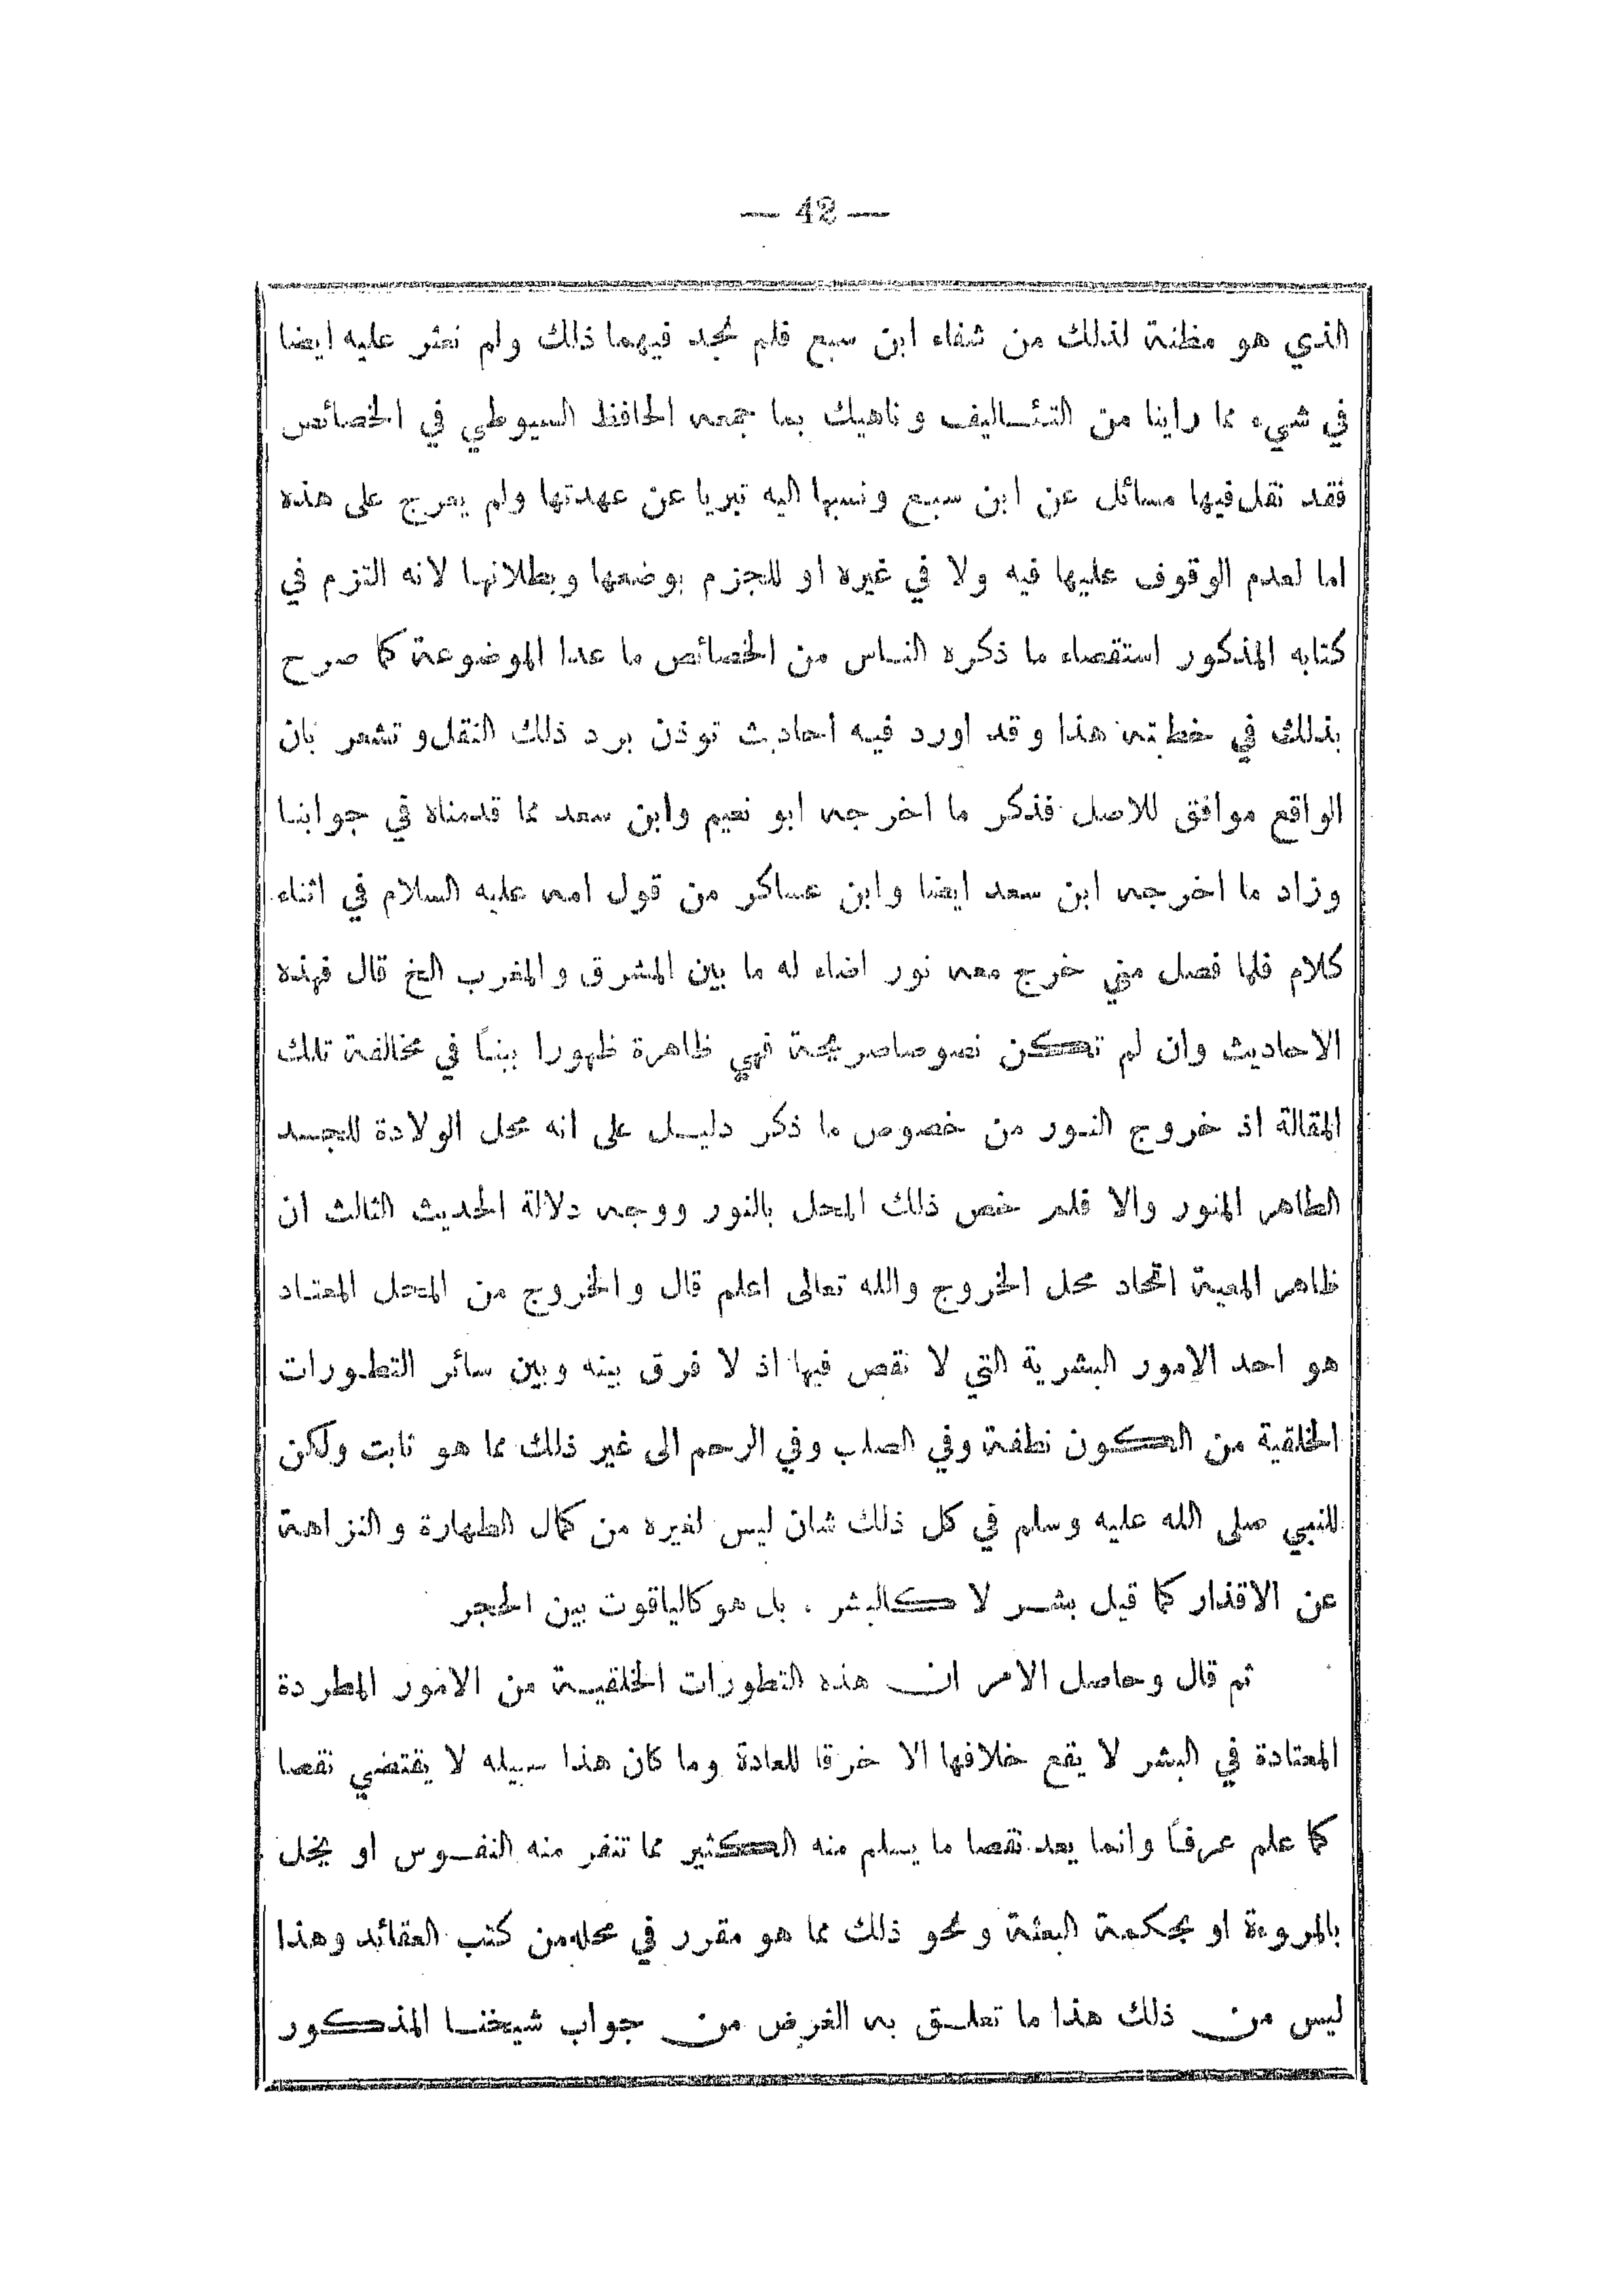 — 42 —
الذي هو مظنة لذلك من شفاء ابن سبع فلم نجد فيهما ذلك ولم نعثر عليه ايضا
في شيء مما راينا من التـئـاليف وناهيك بما جمعه الحافظ السيوطي في الخصائص
فقد نقل فيها مسائل عن ابن سبع ونسبها اليه تبريا عن عهدتها ولم يعرج على هذه
اما لعدم الوقوف عليها فيه ولا في غيره او للجزم بوضعها وبطلانها لانه التزم في
كتابه المذكور استقصاء ما ذكره الناس من الخصائص ما عدا الموضوعة كما صرح
بذلك في خطبته هذا وقد اورد فيه احاديث توذن برد ذلك النقل وتشعر بان
الواقع موافق للاصل فذكر ما اخرجه ابو نعيم وابن سعد مما قدمناه في جوابنا
وزاد ما اخرجه ابن سعد ايضا وابن عساكر من قول امه عليه السلام في اثناء
كلام فلما فصل مني خرج معه نور اضاء له ما بين المشرق والمغرب الخ قال فهذه
الاحاديث وان لم تكن نصوصا صريحة فهي ظاهرة ظهورا بينًا في مخالفة تلك
المقالة اذ خروج النور من خصوص ما ذكر دليل على انه محل الولادة للجسد
الطاهر المنور والا فلم خص ذلك المحل بالنور ووجه دلالة الحديث الثالث ان
ظاهر المعية اتحاد محل الخروج والله تعالى اعلم قال والخروج من المحل المعتاد
هو احد الامور البشرية التي لا نقص فيها اذ لا فرق بينه وبين سائر التطورات
الخلقية من الكون نطفة وفي الصلب وفي الرحم الى غير ذلك مما هو ثابت ولكن
للنبي صلى الله عليه وسلم في كل ذلك شان ليس لغيره من كمال الطهارة والنزاهة
عن الاقذار كما قيل بشر لا كالبشر . بل هو كالياقوت بين الحجر
ثم قال وحاصل الامر ان هذه التطورات الخلقية من الامور المطردة
المعتادة في البشر لا يقع خلافها الا خرقا للعادة وما كان هذا سبيله لا يقتضي نقصا
كما علم عرفًا وانما يعد نقصا ما يسلم منه الكثير مما تنفر منه النفوس او يخل
بالمروءة او بحكمة البعثة ونحو ذلك مما هو مقرر في محله من كتب العقائد وهذا
ليس من ذلك هذا ما تعلق به الغرض من جواب شيخنا المذكور